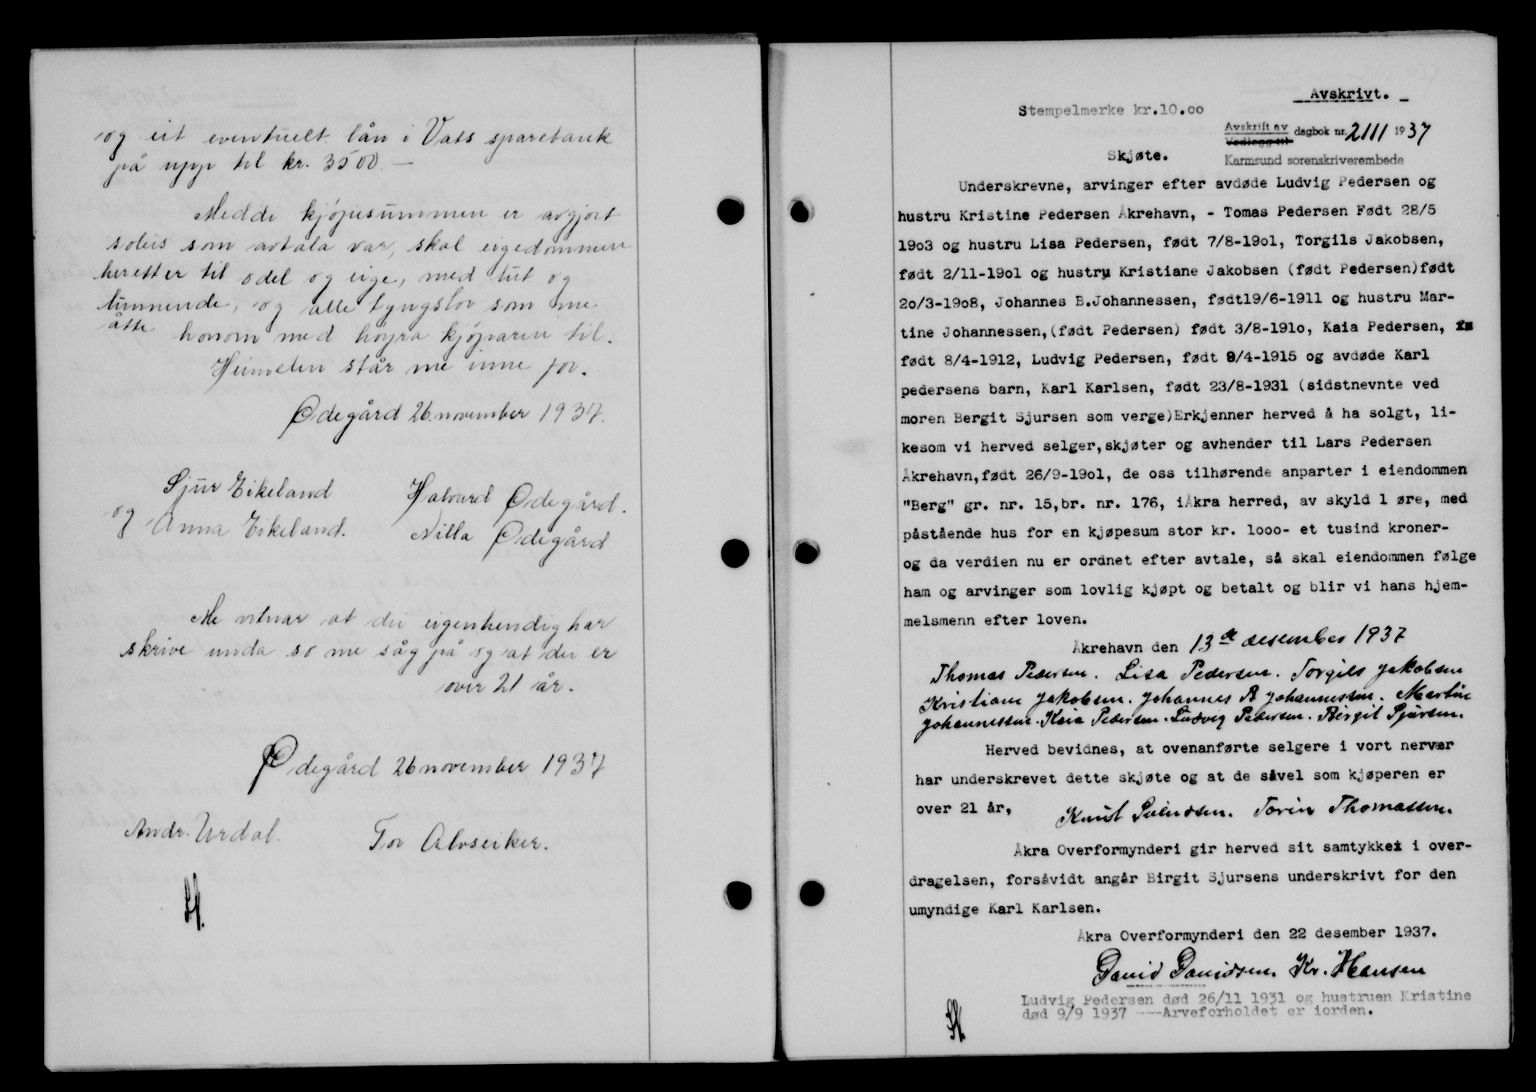 og eit eventuelt lån i Vats sparebank
på upp til kr. 3500 —
Meddi kjöpesummen er avgjort
soleis som avtala var, skal eigedommen
heretter til odel og eige, med lut og
lunnende, og alle tyngslor som me
åtte honom med höyra kjöparen til.
Heimelen står me inne for.
Ødegård 26 november 1937.
Sjur Eikeland
og Anna Eikeland.
Halvard Ødegård.
Nilla Ødegård
Me vitnar at dei eigenhendig har
skrive unda so me såg på og at dei er
over 21 år.
Ødegård 26 november 1937
Andr. Urdal.
Tor Alvseiker.
Avskrivt.
Stempelmerke kr.10.oo
Avskrift av
Vedlegg til
dagbok nr. 2111 1937
Karmsund sorenskriverembede
Skjøte.
Underskrevne, arvinger efter avdøde Ludvig Pedersen og
hustru Kristine Pedersen Åkrehavn, - Tomas Pedersen Født 28/5
19o3 og hustru Lisa Pedersen, født 7/8-19o1, Torgils Jakobsen,
født 2/11-19o1 og hustru Kristiane Jakobsen (født Pedersen)født
2o/3-19o8, Johannes B.Johannessen, født19/6-1911 og hustru Mar-
tine Johannessen,(født Pedersen) født 3/8-191o, Kaia Pedersen,
født 8/4-1912, Ludvig Pedersen, født 9/4-1915 og avdøde Karl
pedersens barn, Karl Karlsen, født 23/8-1931 (sidstnevnte ved
moren Bergit Sjursen som verge)Erkjenner herved å ha solgt, li-
kesom vi herved selger,skjøter og avhender til Lars Pedersen
Åkrehavn,født 26/9-19o1, de oss tilhørende anparter i eiendommen
"Berg" gr. nr. 15,br. nr. 176, iÅkra herred, av skyld 1 øre, med
påstående hus for en kjøpesum stor kr. 1ooo- et tusind kroner-
og da verdien nu er ordnet efter avtale, så skal eiendommen følge
ham og arvinger som lovlig kjøpt og betalt og blir vi hans hjem-
melsmenn efter loven.
Åkrehavn den 13de desember 1937
Thomas Pedersen. Lisa Pedersen. Torgils Jakobsen
Kristiane Jakobsen. Johannes B Johannessen. Martine
Johannessen. Kaia Pedersen. Ludvig Pedersen. Birgit Sjursen.
Herved bevidnes, at ovenanførte selgere i vort nervær
har underskrevet dette skjøte og at de såvel som kjøperen er
over 21 år,
Knut Svendsen. Torin Thomassen.
Åkra Overformynderi gir herved sit samtykket i over-
dragelsen, forsåvidt angår Birgit Sjursens underskrivt for den
umyndige Karl Karlsen.
Åkra Overformynderi den 22 desember 1937.
David Davidsen. Kr. Hansen
Ludvig Pedersen død 26/11 1931 og hustruen Kristine
død 9/9 1937 ---Arveforholdet er iorden.